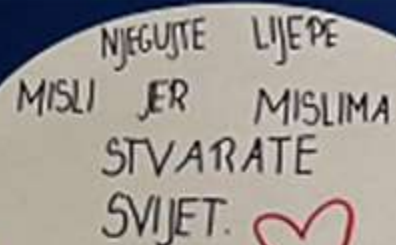 NJEGUJTE LIJEPE
MISLI JER MISLIMA
STVARATE
SVIJET.